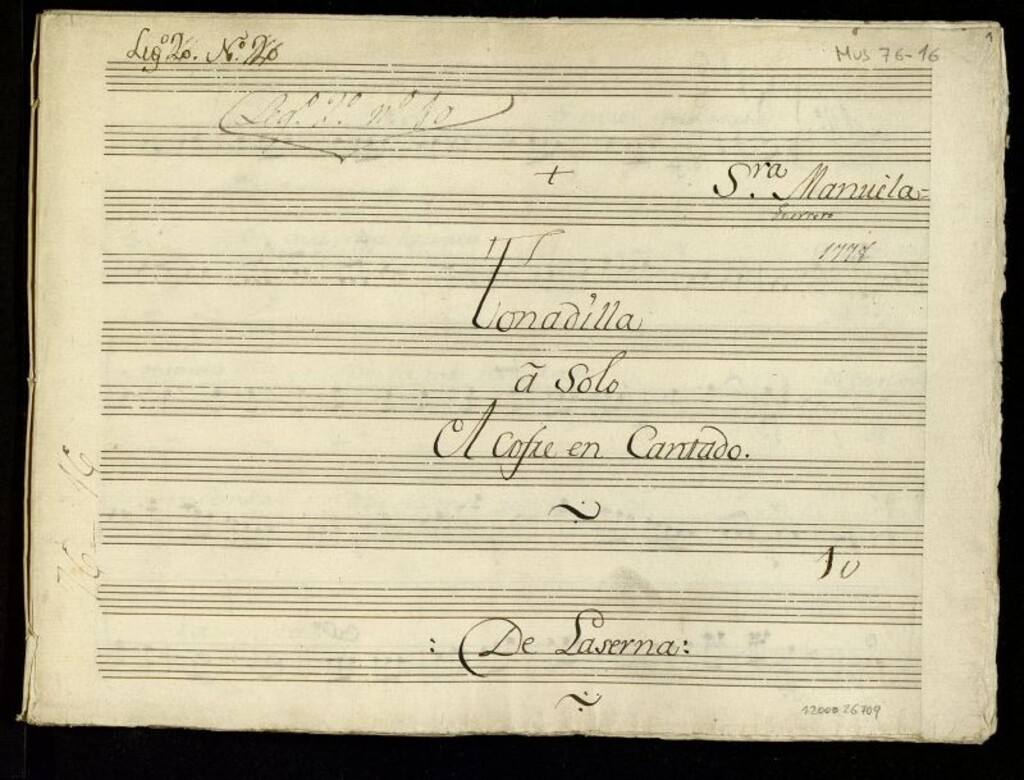 Leg.º 2º. N.º 26
Mus 76-16
1
Leg.º 2.º n.º 10
+
S.ra Manuela=
Guerrero
1778
Tonadilla
â Solo
El Cofre en Cantado.
10
: De Laserna:
76-16
1200026709